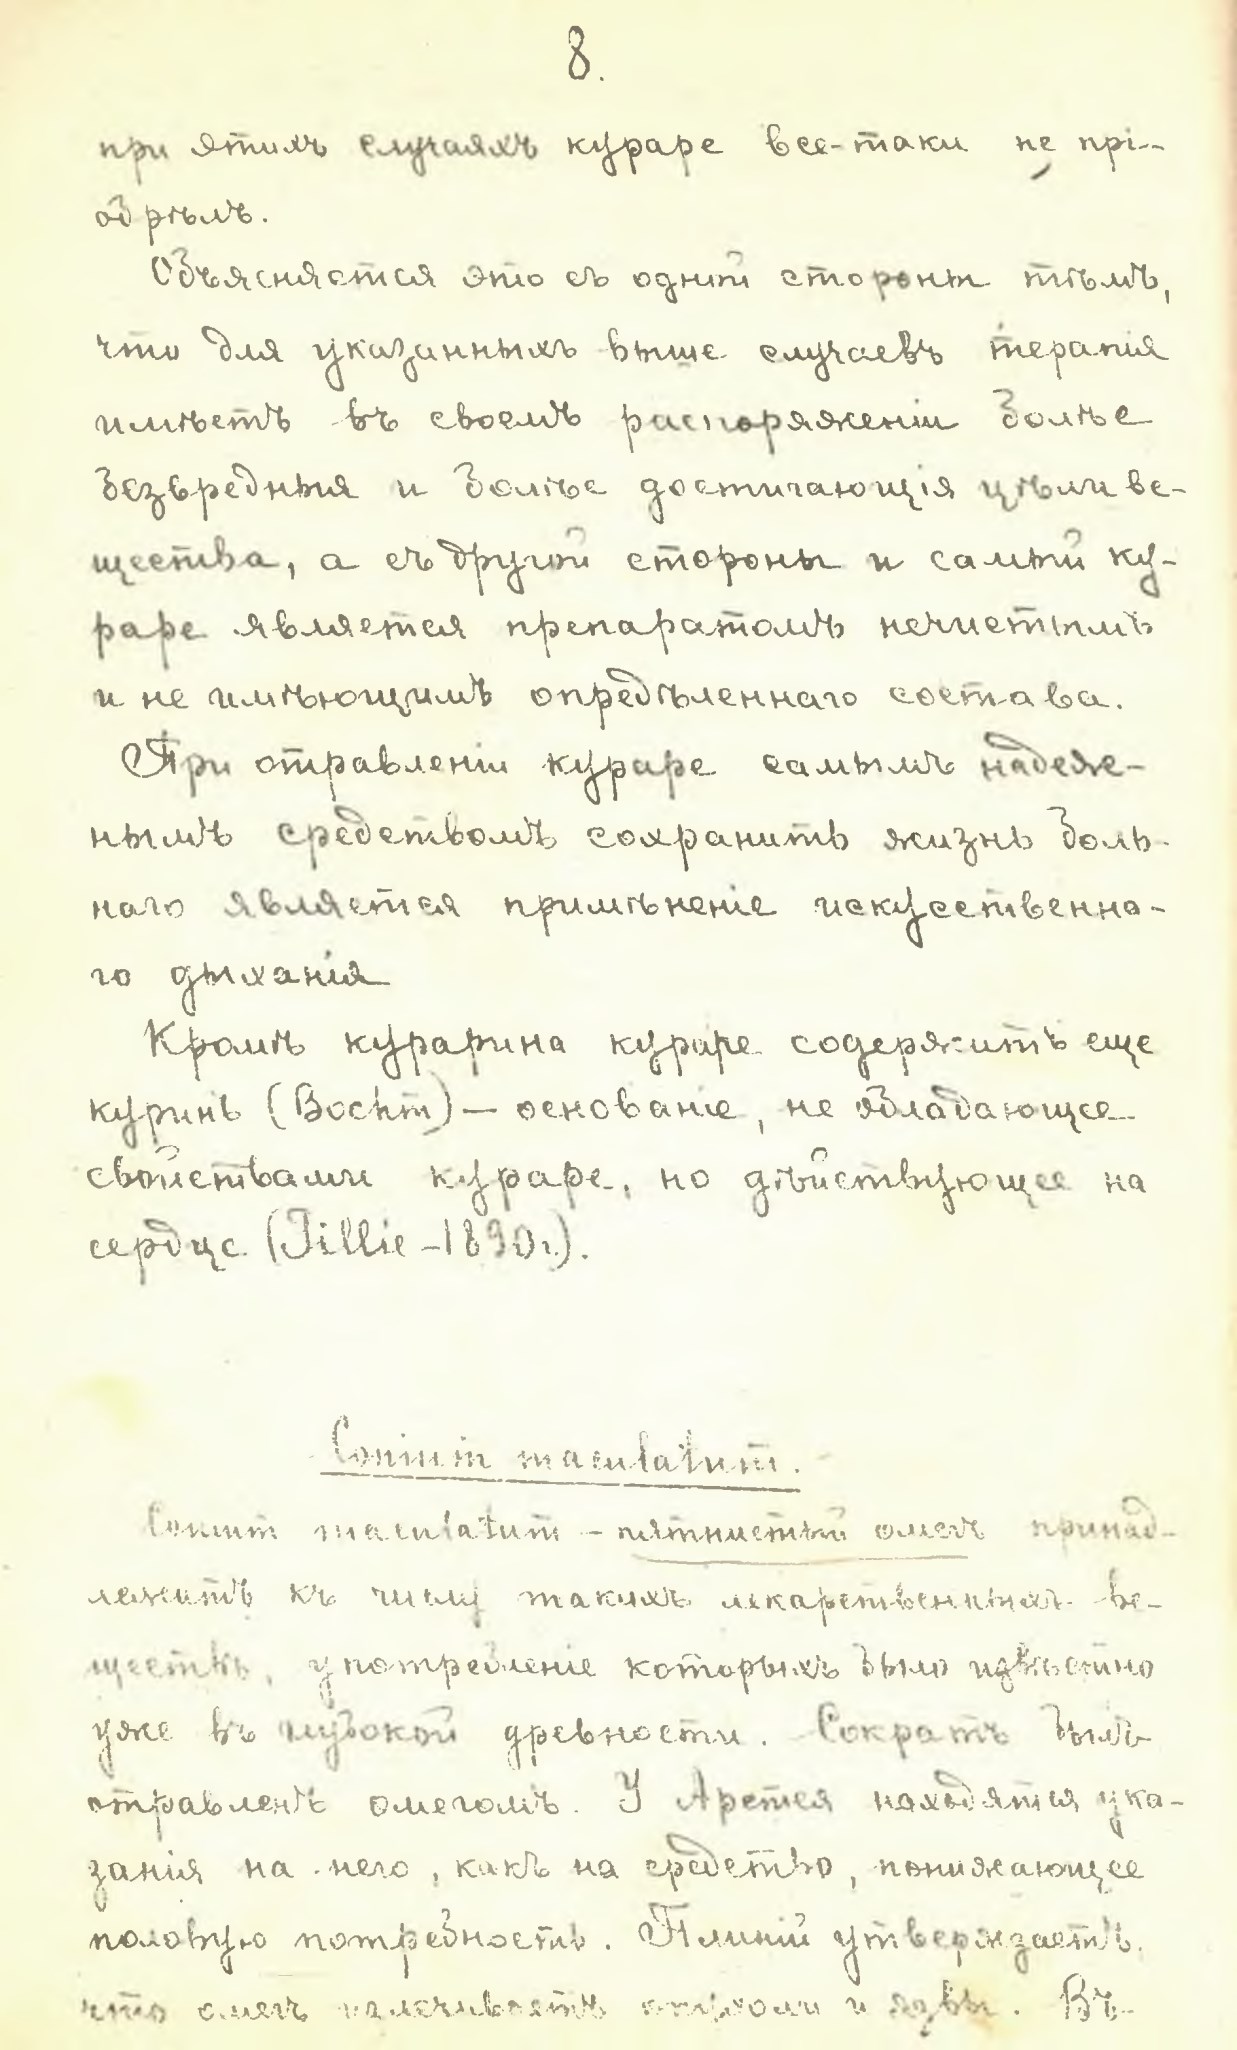 8.
при этихъ случаяхъ кураре все-таки не прі-
обрѣлъ.
Объясняется это съ одной стороны тѣмъ,
что для указанныхъ выше случаевъ терапія
имѣетъ въ своемъ распоряженіи болѣе
безвредныя и болѣе достигающія цѣли ве-
щества, а съ другой стороны и самый ку-
раре является препаратомъ нечистымъ
и не имѣющимъ опредѣленнаго состава.
При отравленіи кураре самымъ надеж-
нымъ средствомъ сохранить жизнь боль-
наго является примѣненіе искусственна-
го дыханія
Кромѣ курарина кураре содержитъ еще
куринъ (Boehm) — основаніе, не обладающее
свойствами кураре, но дѣйствующее на
сердце (Tillie - 1890 г.).
Conium maculatum.
Conium maculatum - пятнистый омегъ принад-
лежитъ къ числу такихъ лекарственныхъ ве-
ществъ, употребленіе которыхъ было извѣстно
уже въ глубокой древности. Сократъ былъ
отравленъ омегомъ. У Аретея находятся ука-
занія на него, какъ на средство, понижающее
половую потребность. Плиній утверждаетъ,
что омегъ излечиваетъ опухоли и язвы. Въ